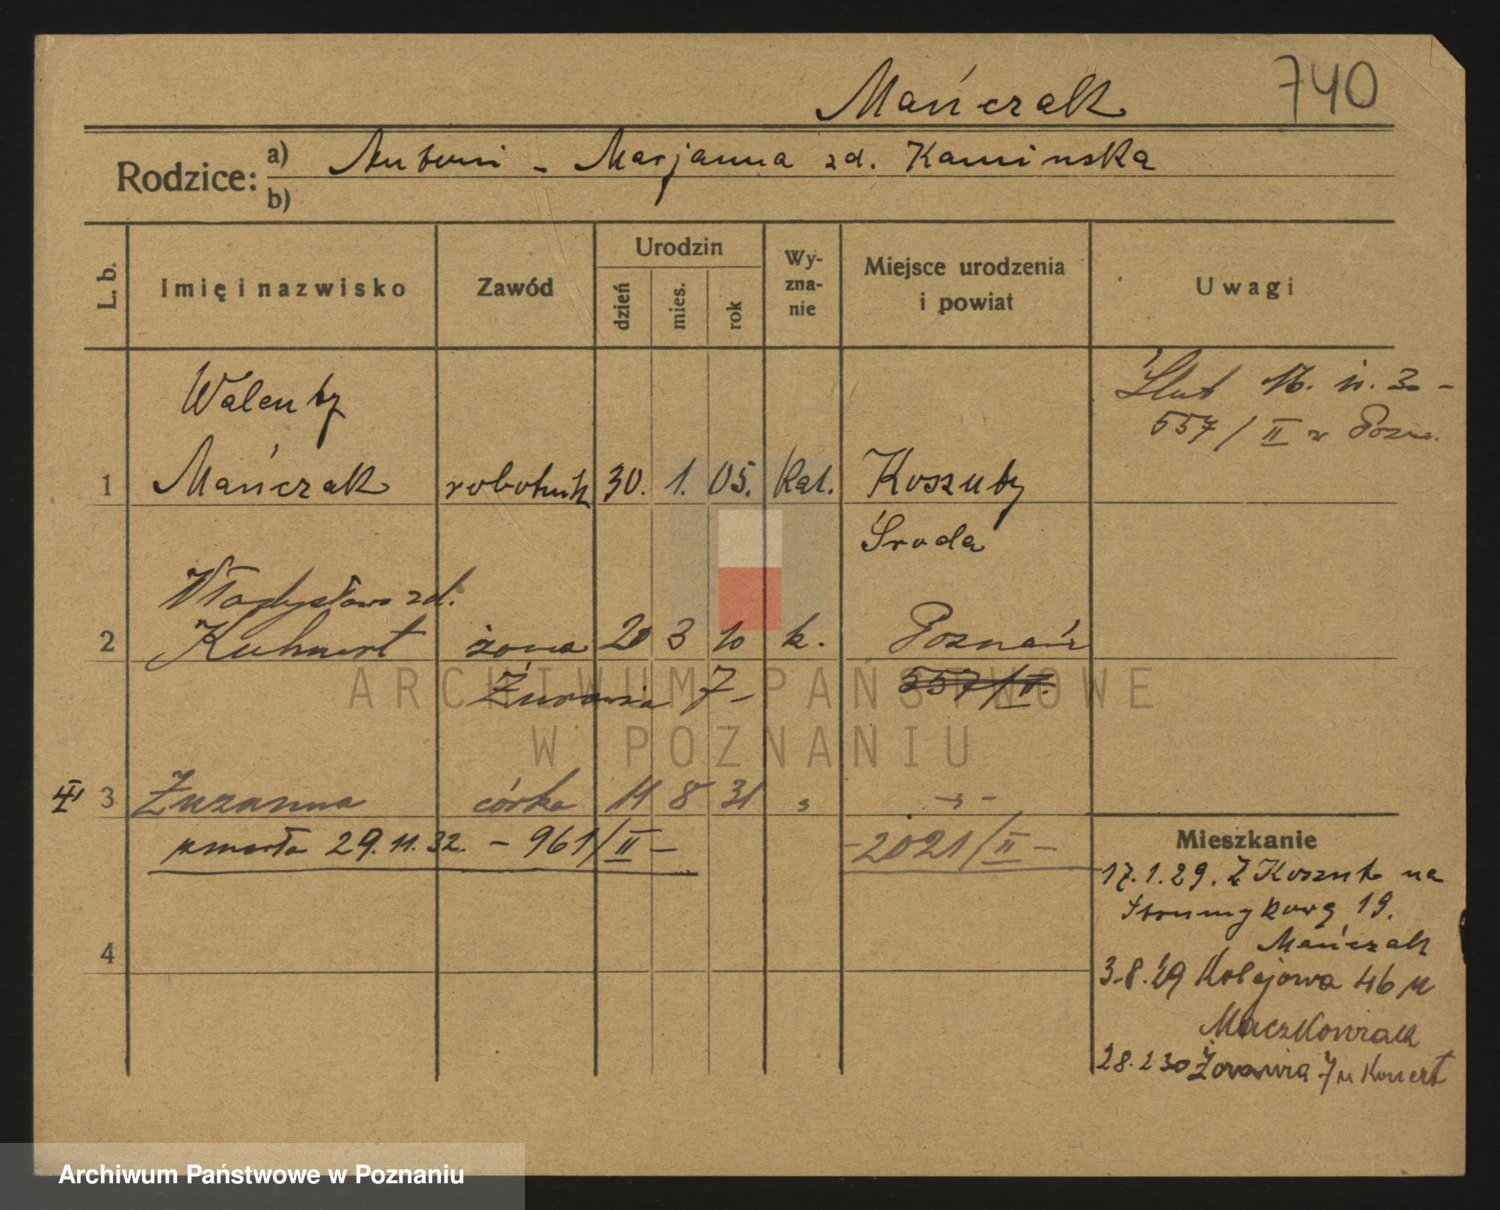 Mańczak 740
Rodzice: a) Antoni - Marjanna zd. Kaminska
b)
L. b. Imię i nazwisko Zawód Urodzin dzień mies. rok Wyznanie Miejsce urodzenia i powiat Uwagi
Ślub 16. 11. 30 -
557/II w Pozn.
Walenty
1 Mańczak robotnik 30. 1. 05. Kat. Koszuty
Środa
Władysława zd.
2 Kuhnert żona 20 3 10 k. Poznań
Żurawia 7- 557/II.
3 Zuzanna córka 11 8 31 " -"-
umarła 29.11.32. - 961/II - -2021/II-
4
Mieszkanie
17.1.29. Z Koszut na
Strumykową 19.
Mańczak
3.8.29 Kolejowa 46 u
Maczkowiak
28.2 30 Żorawia 7 u Konert
ARCHIWUM PAŃSTWOWE
W POZNANIU
Archiwum Państwowe w Poznaniu